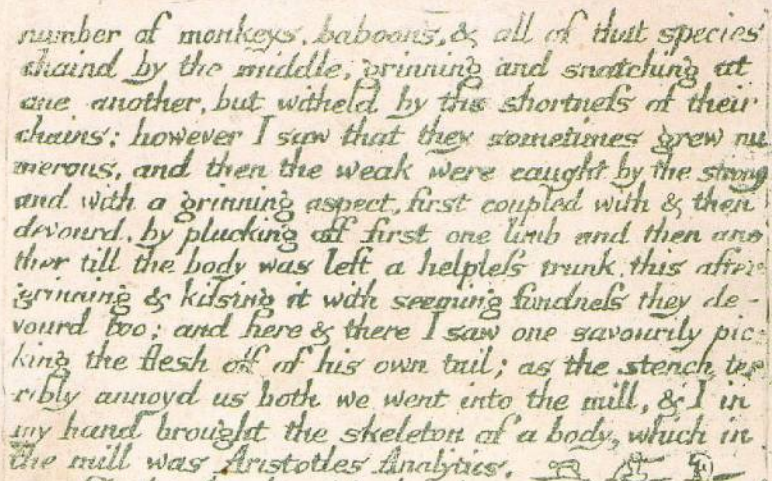 number of monkeys, baboons, & all of that species
chaind by the middle, grinning and snatching at
one another, but witheld by the shortneſs of their
chains: however I saw that they sometimes grew nu
merous, and then the weak were caught by the strong
and with a grinning aspect, first coupled with & then
devourd, by plucking off first one limb and then ano
ther till the body was left a helpleſs trunk. this after
grinning & kiſsing it with seeming fondneſs they de-
vourd too; and here & there I saw one savourily pic-
king the flesh off of his own tail; as the stench ter
ribly annoyd us both we went into the mill, & I in
my hand brought the skeleton of a body, which in
the mill was Aristotles Analytics.